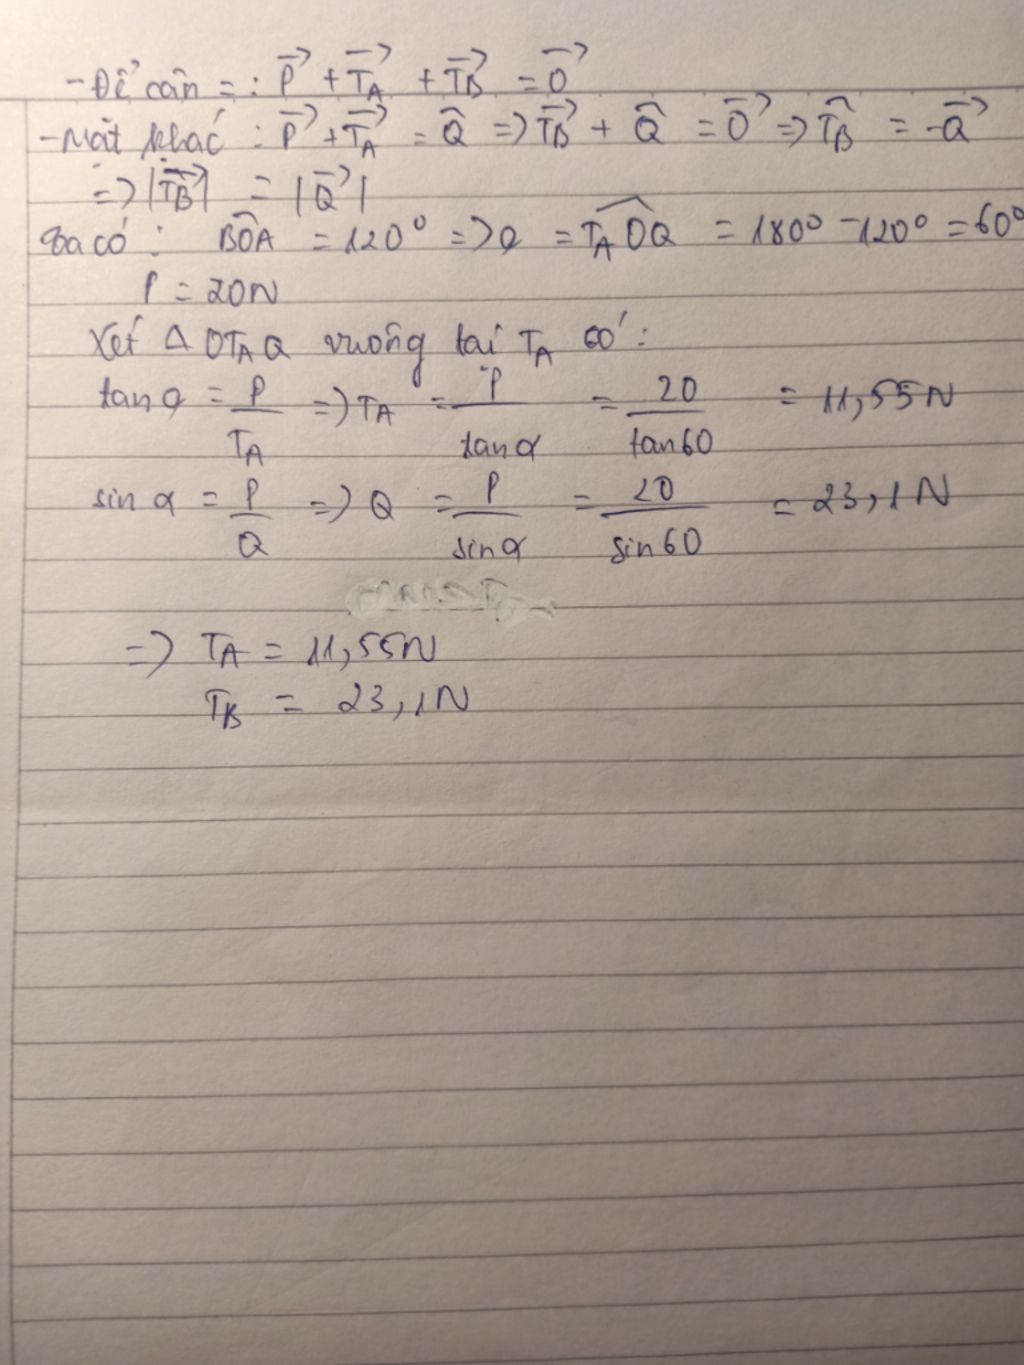 - Để cân = : P⃗ + T⃗A + T⃗B = 0⃗
- Mặt khác : P⃗ + T⃗A = Q⃗ => T⃗B + Q⃗ = 0⃗ => T⃗B = -Q⃗
=> |T⃗B| = |Q⃗|
Ta có : BÔA = 120° => α = TAÔQ = 180° - 120° = 60°
P = 20N
Xét Δ OTAQ vuông tại TA có :
tan α = P/TA => TA = P/tan α = 20/tan60 = 11,55N
sin α = P/Q => Q = P/sin α = 20/sin60 = 23,1N
=> TA = 11,55N
TB = 23,1N